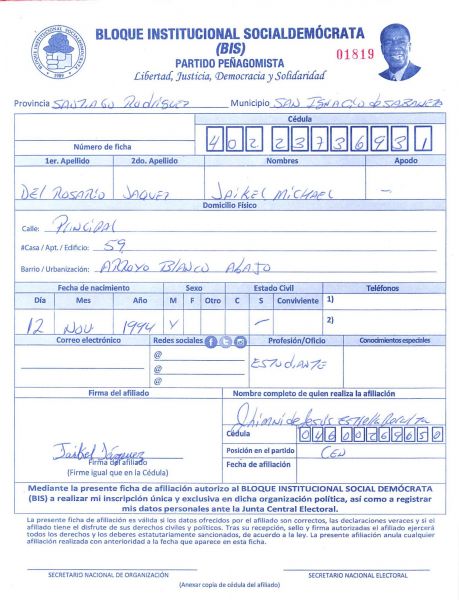 BLOQUE INSTITUCIONAL SOCIALDEMÓCRATA
(BIS)
01819
PARTIDO PEÑAGOMISTA
Libertad, Justicia, Democracia y Solidaridad
Provincia SANTIAGO RODRÍGUEZ Municipio SAN IGNACIO de SABANETA
Cédula
Número de ficha 40223736931
1er. Apellido 2do. Apellido Nombres Apodo
DEL ROSARIO JAQUEZ JAIKEL MICHAEL —
Domicilio Físico
Calle: PRINCIPAL
#Casa / Apt. / Edificio: 59
Barrio / Urbanización: ARROYO BLANCO ABAJO
Fecha de nacimiento Sexo Estado Civil Teléfonos
Día Mes Año M F Otro C S Conviviente 1)
12 NOV 1994 2)
Correo electrónico Redes sociales Profesión/Oficio Conocimientos especiales
@ ESTUDIANTE
@
@
Firma del afiliado Nombre completo de quien realiza la afiliación
Cédula 04600269650
Firma del afiliado
(Firme igual que en la Cédula)
Posición en el partido CEN
Fecha de afiliación
Mediante la presente ficha de afiliación autorizo al BLOQUE INSTITUCIONAL SOCIAL DEMÓCRATA
(BIS) a realizar mi inscripción única y exclusiva en dicha organización política, así como a registrar
mis datos personales ante la Junta Central Electoral.
La presente ficha de afiliación es válida si los datos ofrecidos por el afiliado son correctos, las declaraciones veraces y si el
afiliado tiene el disfrute de sus derechos civiles y políticos. Tras su recepción, sello y firma autorizadas el afiliado ejercerá
todos los derechos y los deberes estatutariamente sancionados, de acuerdo a la ley. La presente afiliación anula cualquier
afiliación realizada con anterioridad a la fecha que aparece en esta ficha.
SECRETARIO NACIONAL DE ORGANIZACIÓN SECRETARIO NACIONAL ELECTORAL
(Anexar copia de cédula del afiliado)